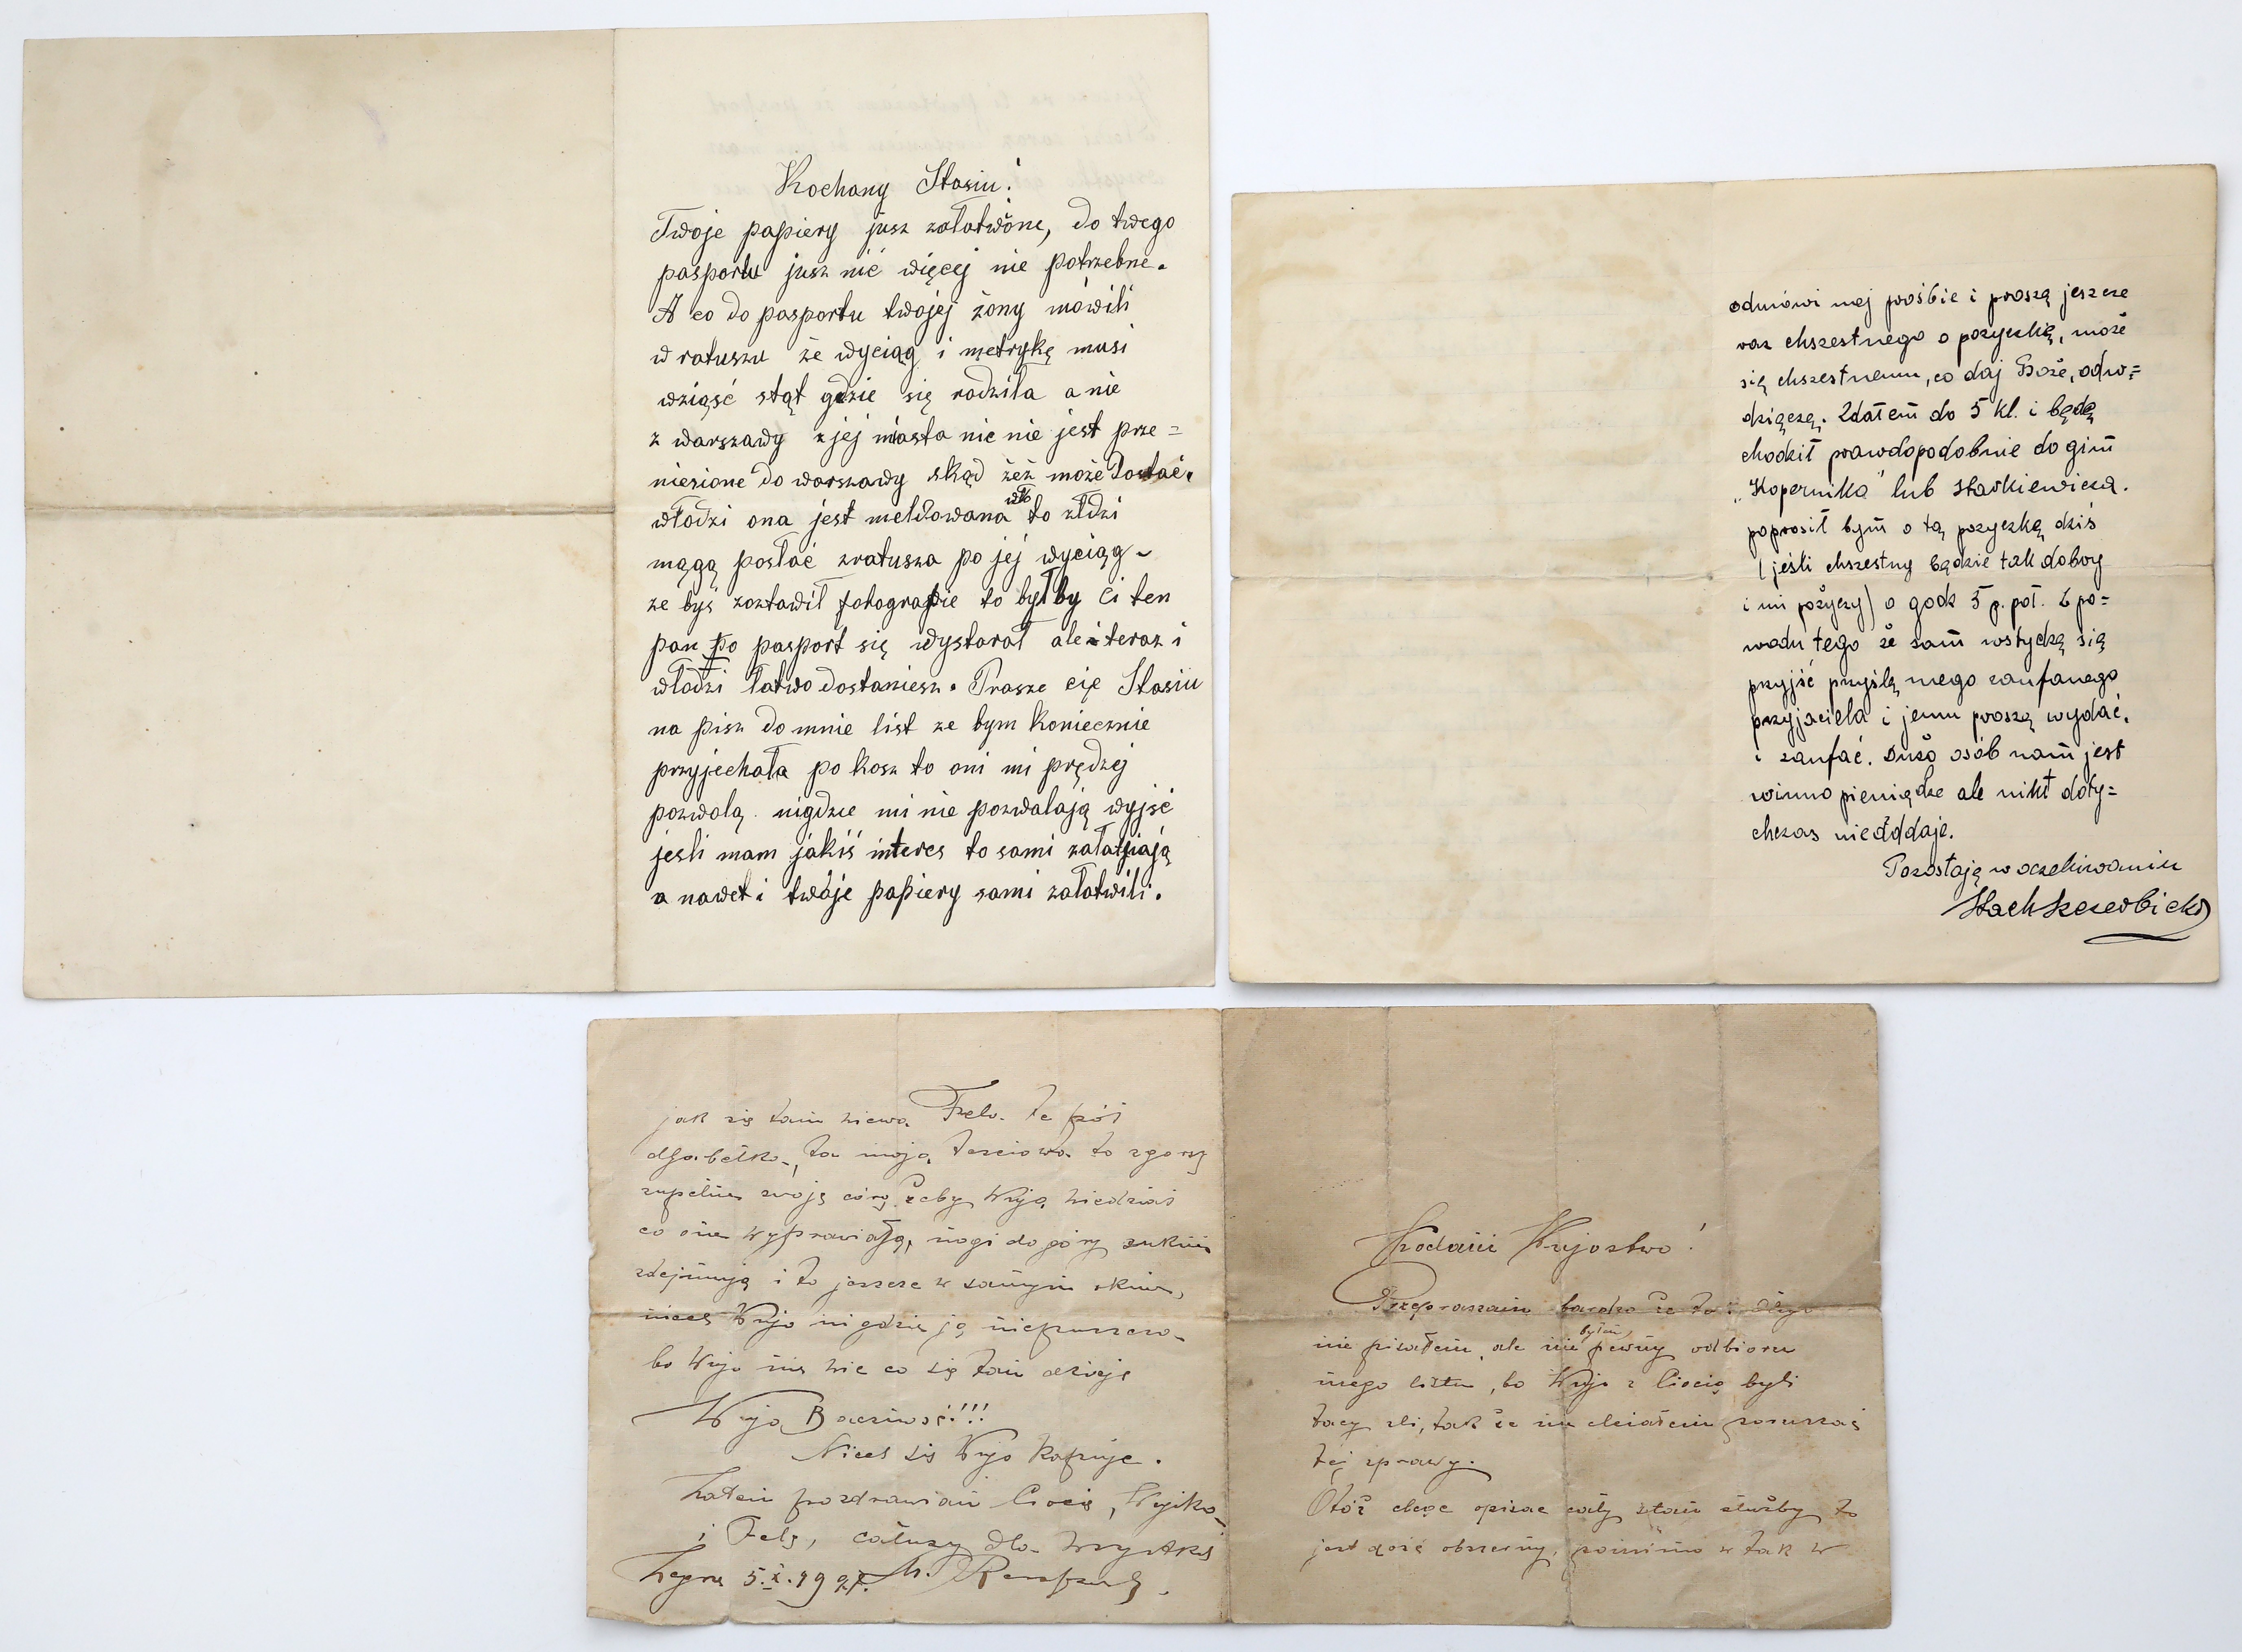 Kochany Stasiu!
Twoje papiery jusz załatwióne, do twego
pasportu jusz nić więcej nie potrzebne.
A co do pasportu twojej żony mówili
w ratuszu że wyciąg i metrykę musi
wziąść stąt gdzie się rodziła a nie
z warszawy z jej miasta nic nie jest prze=
niesione do warszawy skąd żeż może dostać.
włodzi ona jest meldowana to włdzi
mągą posłać zratusza po jej wyciąg
ze byś zoztawił fotografie to byłby ci ten
pan po pasport się wystarał ale i teraz i
włodzi łatwo dostaniesz. Prasze cię Stasiu
na pisz do mnie list ze bym koniecznie
przyjechała po kosz to oni mi prędzej
pozwolą nigdzie mi nie pozwalają wyjść
jesli mam jakiś interes to sami załatwiają
a nawet i twoje papiery sami załatwili.
odmówi mej prośbie i proszę jeszcze
raz chszestnego o pożyczkę, może
się chszestnemu, co daj Boże, odw=
dzięczę. Zdałem do 5 kl. i będę
chodził prawdopodobnie do gim
"Kopernika" lub Skarkiewicza.
poprosił bym o tą pożyczkę dziś
(jeśli chszestny będzie tak dobry
i mi pożyczy) o godz 5 p. poł. Z po=
wodu tego że sam wstydzę się
przyjść przyślę mego zaufanego
przyjaciela i jemu proszę wydać,
i zaufać. Dużo osób nam jest
winno pieniędze ale nikt doty=
chczas nieoddaje.
Pozostaję w oczekiwaniu
Stach Szczerbicki
jak się tam miewa Fela. Te pół
djabełka, ta moja teściowa to zgorszy
zupełnie swoją córę żeby Wujo wiedział
co one wyprawiają, nogi do góry suknie
zdejmują i to jeszcze w samym oknie,
niech Wujo nigdzie ją niepuszcza
bo Wujo nie wie co się tam dzieje
Wujo Baczność!!!
Niech się Wujo kapuje.
Zatem pozdrawiam Ciocię, Wujka
i Felę, całusy dla wszystkich
5.X.19
Kochani Wujostwo!
Przepraszam bardzo że tak długo
nie pisałem, ale nie byłem pewny odbioru
mego listu, bo Wujo z Ciocią byli
tacy zli, tak że nie chciałem poruszać
tej sprawy.
Otóż chcę opisać cały stan służby to
jest dość obszerny, pomimo w tak w